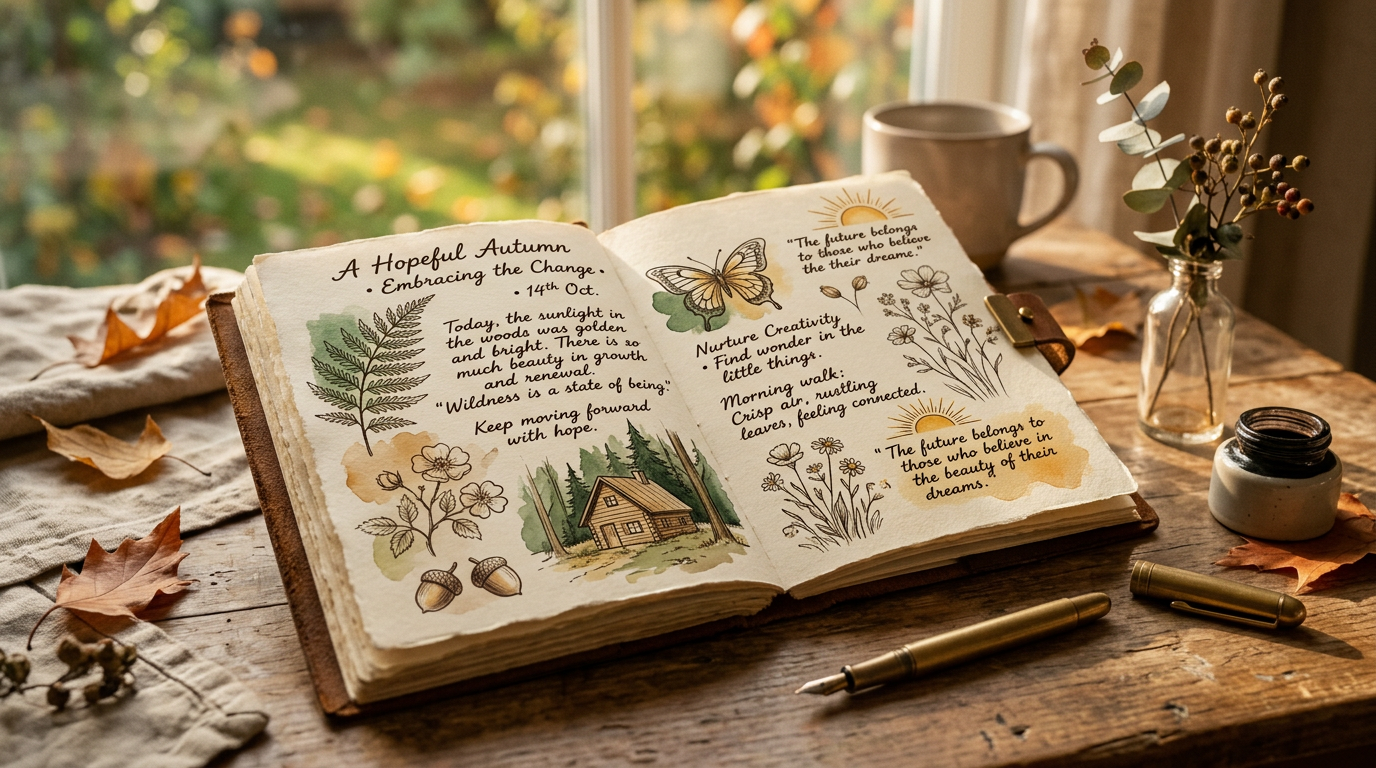 A Hopeful Autumn
• Embracing the Change •
• 14th Oct.
Today, the sunlight in
the woods was golden
and bright. There is so
much beauty in growth
and renewal.
"Wildness is a state of being."
Keep moving forward
with hope.
"The future belongs
to those who believe
the their dreame."
Nurture Creativity
• Find wonder in the
little things.
Morning walk:
Crisp air, rustling
leaves, feeling connected.
"The future belongs to
those who believe in
the beauty of their
dreams."